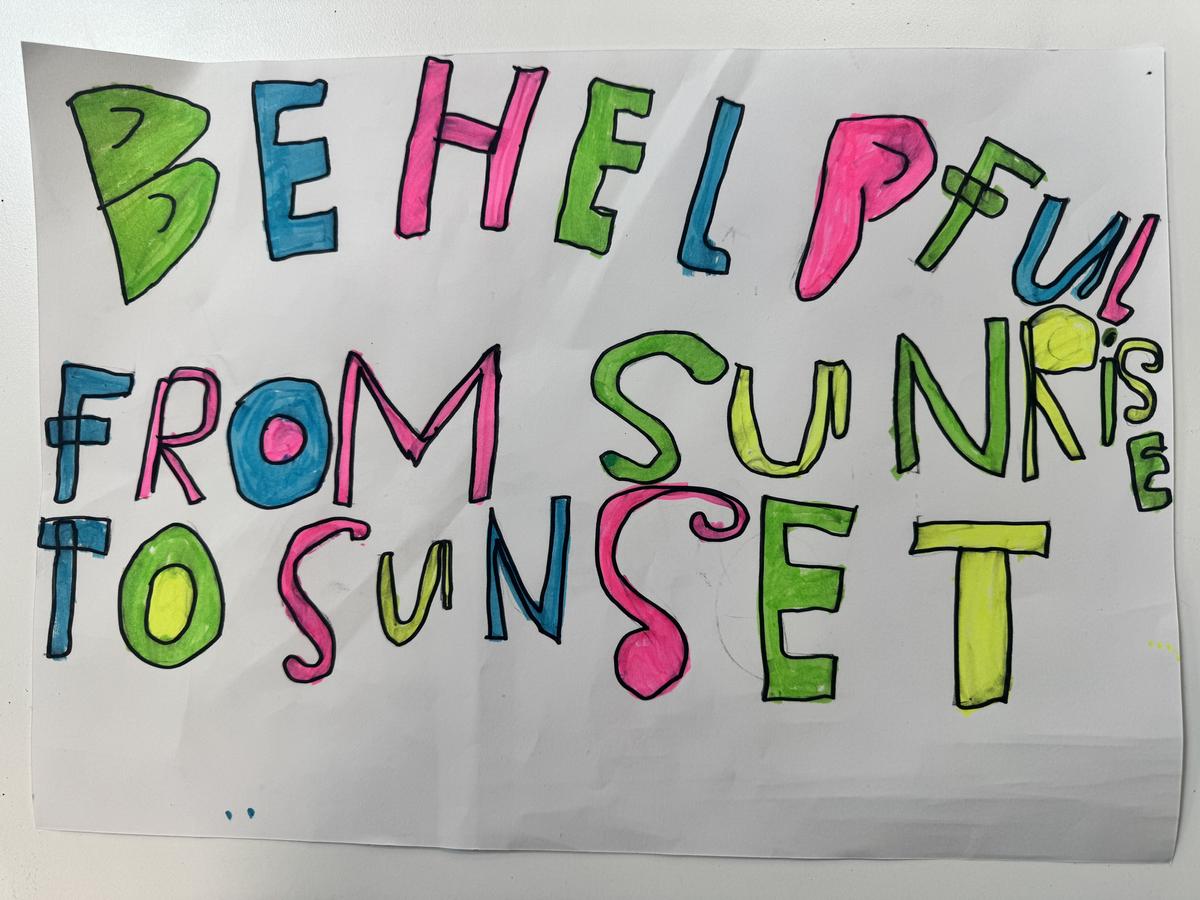 BE HELPFUl
FROM SUNRiSE
TO SUNSET